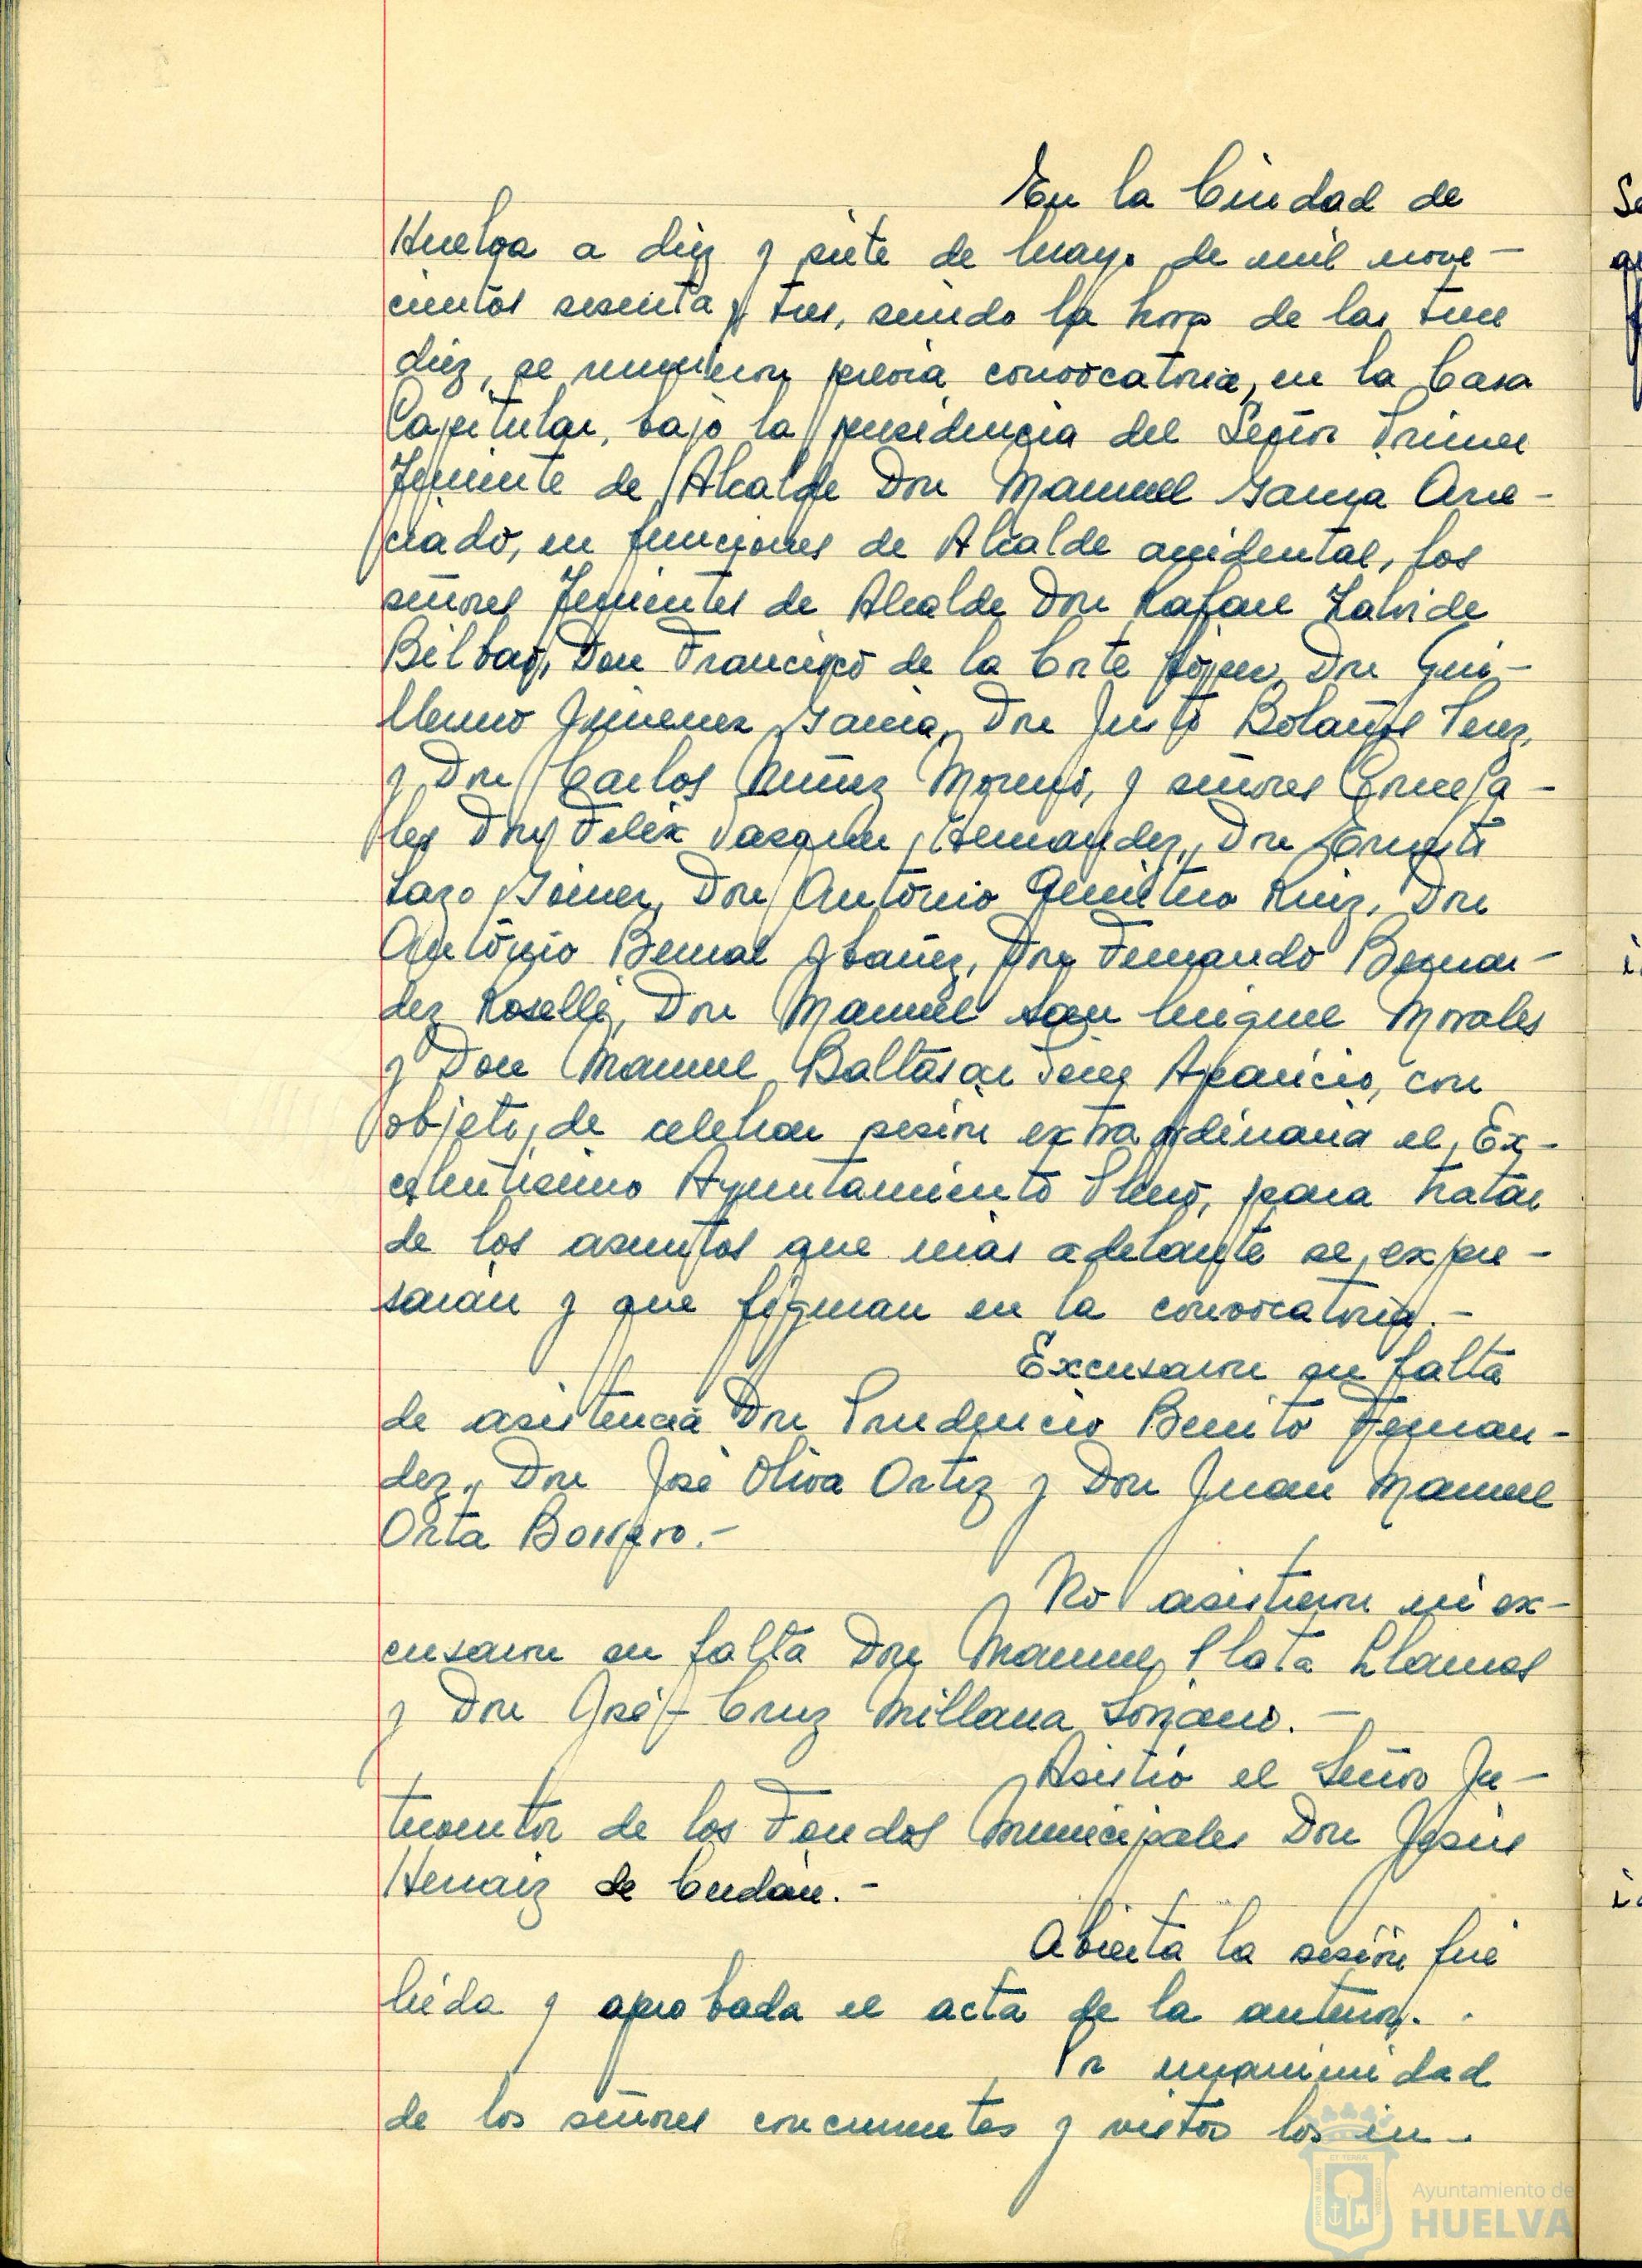 En la Ciudad de
Huelva a diez y siete de Mayo de mil nove-
cientos sesenta y tres, siendo la hora de las trece
diez, se reunieron previa convocatoria, en la Casa
Capitular, bajo la presidencia del Señor Primer
Teniente de Alcalde Don Manuel Garcia Arre-
ciado, en funciones de Alcalde accidental, los
señores Tenientes de Alcalde Don Rafael Zalvide
Bilbao, Don Francisco de la Corte López, Don Gui-
llermo Jimenez Garcia, Don Justo Bolaños Perez,
y Don Carlos Nuñez Moreno, y señores Conceja-
les Don Felix Vazquez Hernandez, Don Ernesto
Lazo Gómez, Don Antonio Quintero Ruiz, Don
Antonio Bernal Ybañez, Don Fernando Bermu-
dez Roselló, Don Manuel San Miguel Morales
y Don Manuel Baltasar Pérez Aparicio, con
objeto de celebrar sesión extraordinaria el Ex-
celentisimo Ayuntamiento Pleno, para tratar
de los asuntos que más adelante se expre-
sarán y que figuran en la convocatoria.-
Excusaron su falta
de asistencia Don Prudencio Benito Fernan-
dez, Don José Oliva Ortiz y Don Juan Manuel
Orta Borrero.-
No asistieron ni ex-
cusaron su falta Don Manuel Plata Llamas
y Don José-Cruz Millana Lozano.-
Asistió el Señor In-
terventor de los Fondos Municipales Don Jesús
Hernaiz de Cerdán.-
Abierta la sesión fue
leida y aprobada el acta de la anterior.
Por unanimidad
de los señores concurrentes y vistos los in-
Ayuntamiento de
HUELVA